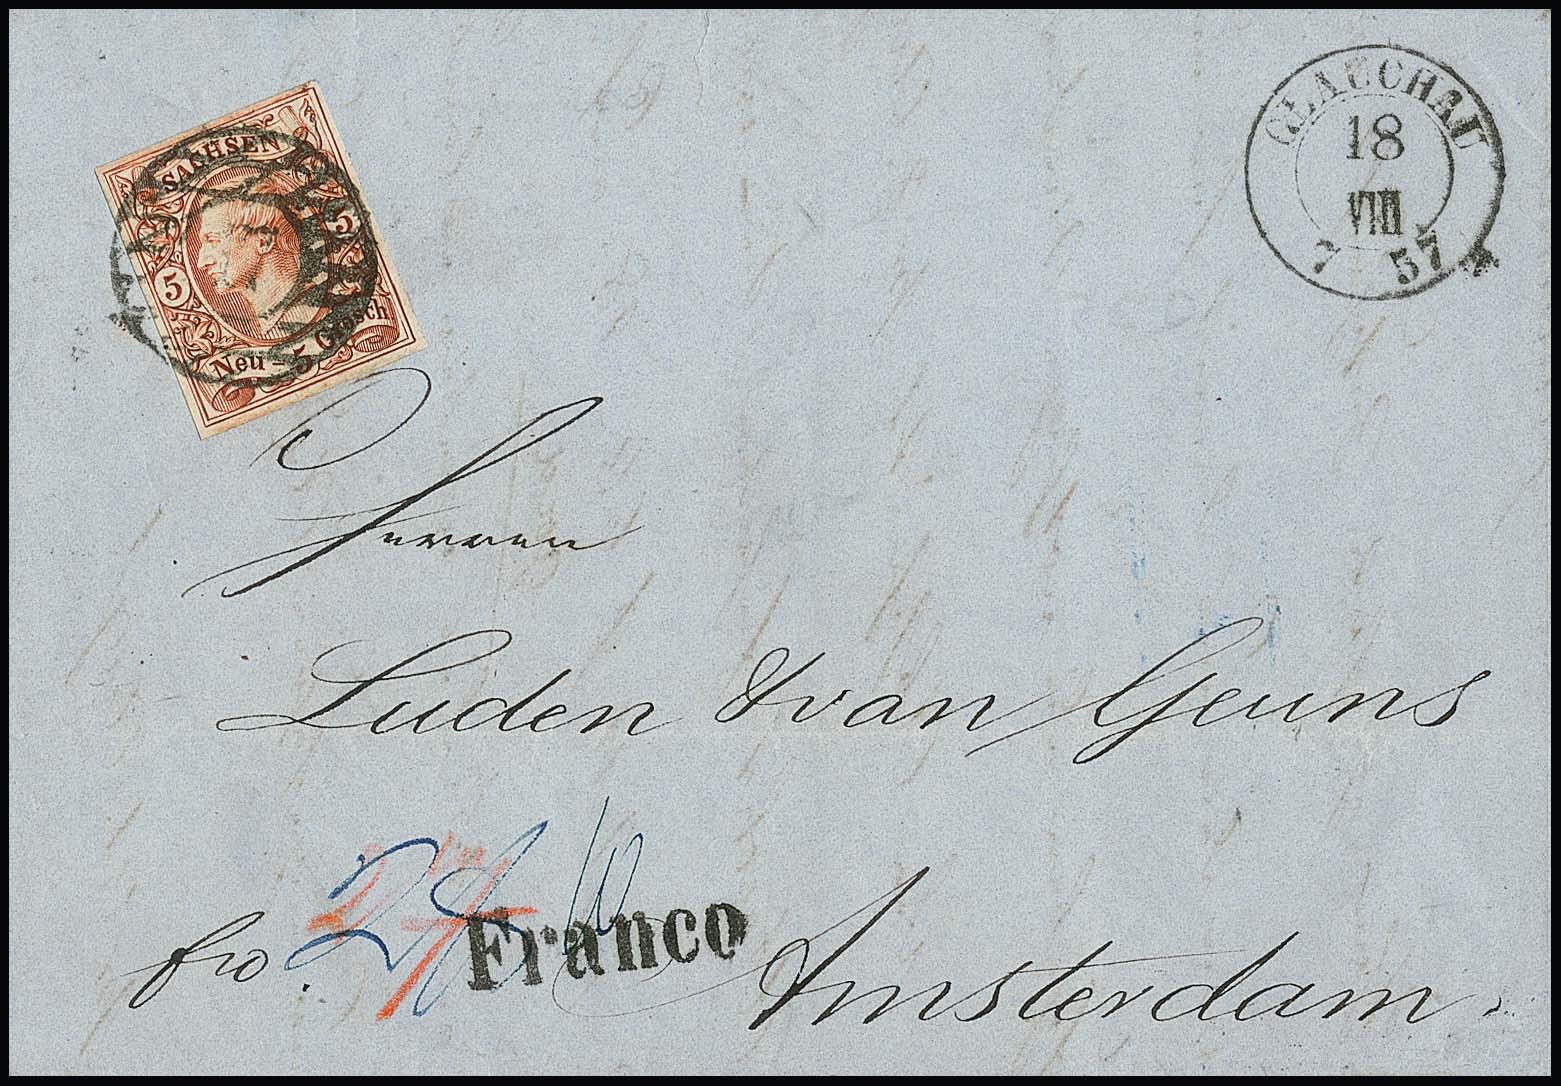 SACHSEN
5 5
Neu - 5 Grosch
GLAUCHAU
18
VIII
7 57
Herren
Luden & van Geuns
fro. Franco
Amsterdam.